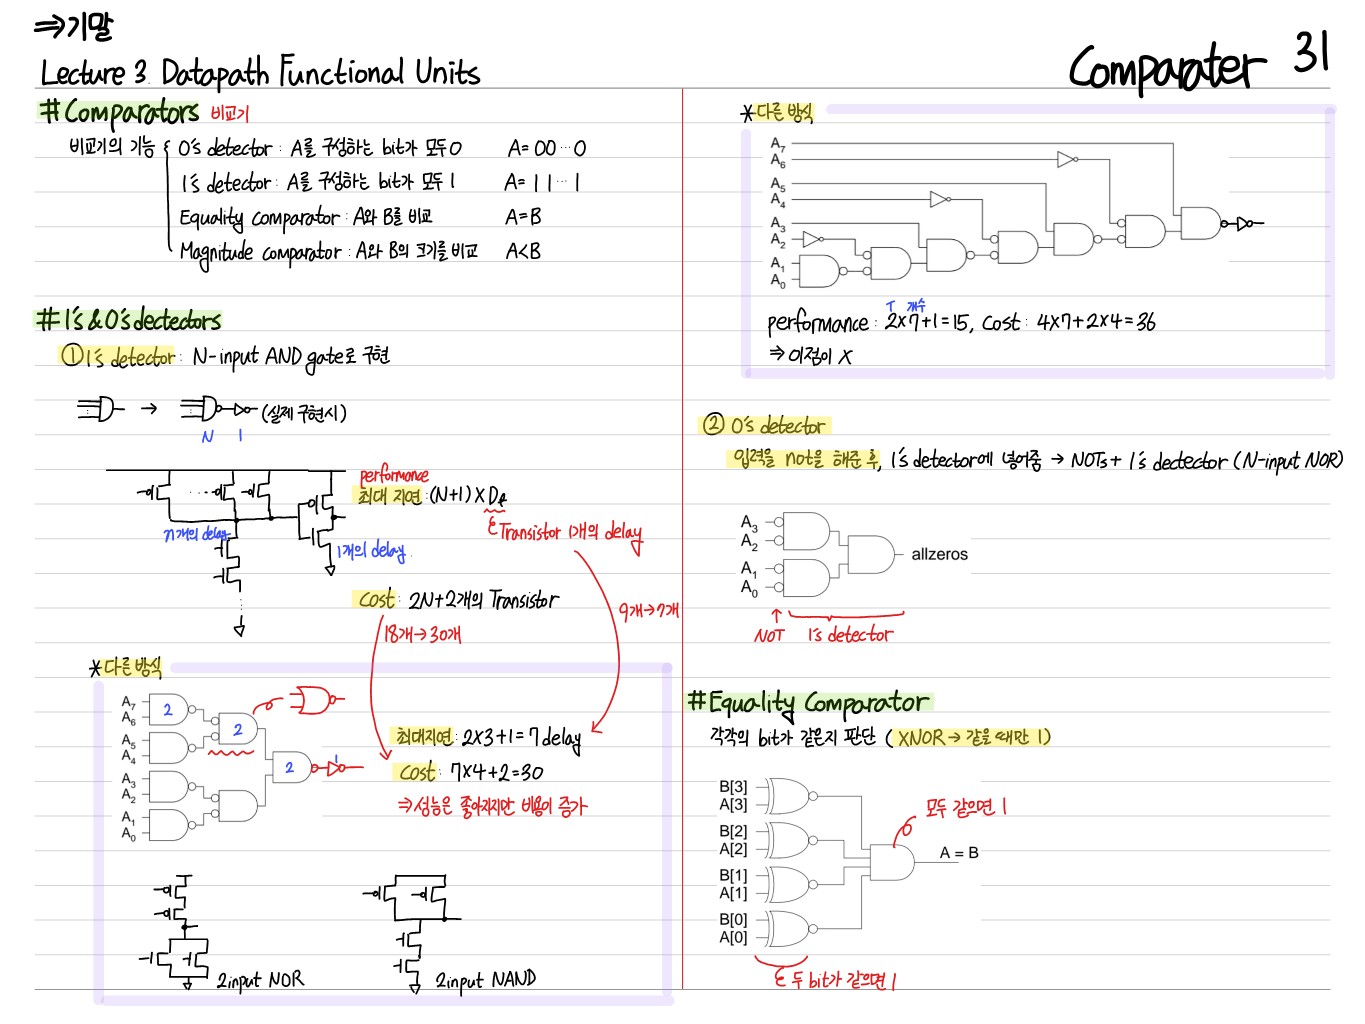 ⇒기말
Lecture 3. Datapath Functional Units
Comparater 31
#Comparators 비교기
비교기의 기능
0's detector : A를 구성하는 bit가 모두 0 A=00…0
1's detector : A를 구성하는 bit가 모두 1 A=11…1
Equality comparator : A와 B를 비교 A=B
Magnitude comparator : A와 B의 크기를 비교 A<B
#1's&0's dectectors
① 1's detector : N-input AND gate로 구현
→ (실제 구현시)
N 1
performance
최대 지연 : (N+1)×
Transistor 1개의 delay
n개의 delay
1개의 delay
cost : 2N+2개의 Transistor
18개→30개
9개→7개
*다른 방식
A7
A6
A5
A4
A3
A2
A1
A0
2
2
2
1
최대지연 : 2×3+1=7 delay
cost : 7×4+2=30
⇒성능은 좋아지지만 비용이 증가
2input NOR
2input NAND
*다른 방식
A7
A6
A5
A4
A3
A2
A1
A0
T 개수
performance : 2×7+1=15, cost : 4×7+2×4=36
⇒이점이 X
② 0's detector
입력을 not을 해준 후, 1's detector에 넣어줌 → NOTs + 1's dectector (N-input NOR)
A3
A2
A1
A0
allzeros
↑
NOT 1's detector
#Equality Comparator
각각의 bit가 같은지 판단 (XNOR→같을 때만 1)
B[3]
A[3]
B[2]
A[2]
B[1]
A[1]
B[0]
A[0]
모두 같으면 1
A = B
두 bit가 같으면 1